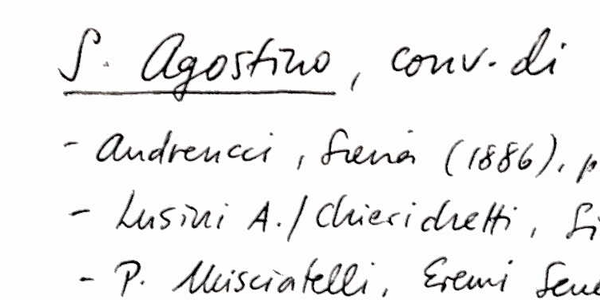 S. Agostino, conv. di
- Andreucci, Siena (1886), p
- Lusini A./Chierichetti, Si
- P. Misciatelli, Eremi Sene